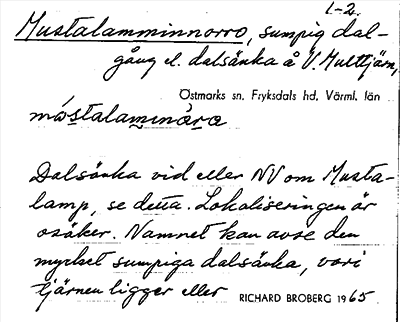 1-2.
Mustalamminnorro, sumpig dal-
gång el. dalsänka å V. Multtjärn,
Östmarks sn. Fryksdals hd. Värml. län
Dalsänka vid eller NV om Musta-
lamp, se detta. Lokaliseringen är
osäker. Namnet kan avse den
mycket sumpiga dalsänka, vari
tjärnen ligger eller
RICHARD BROBERG 1965